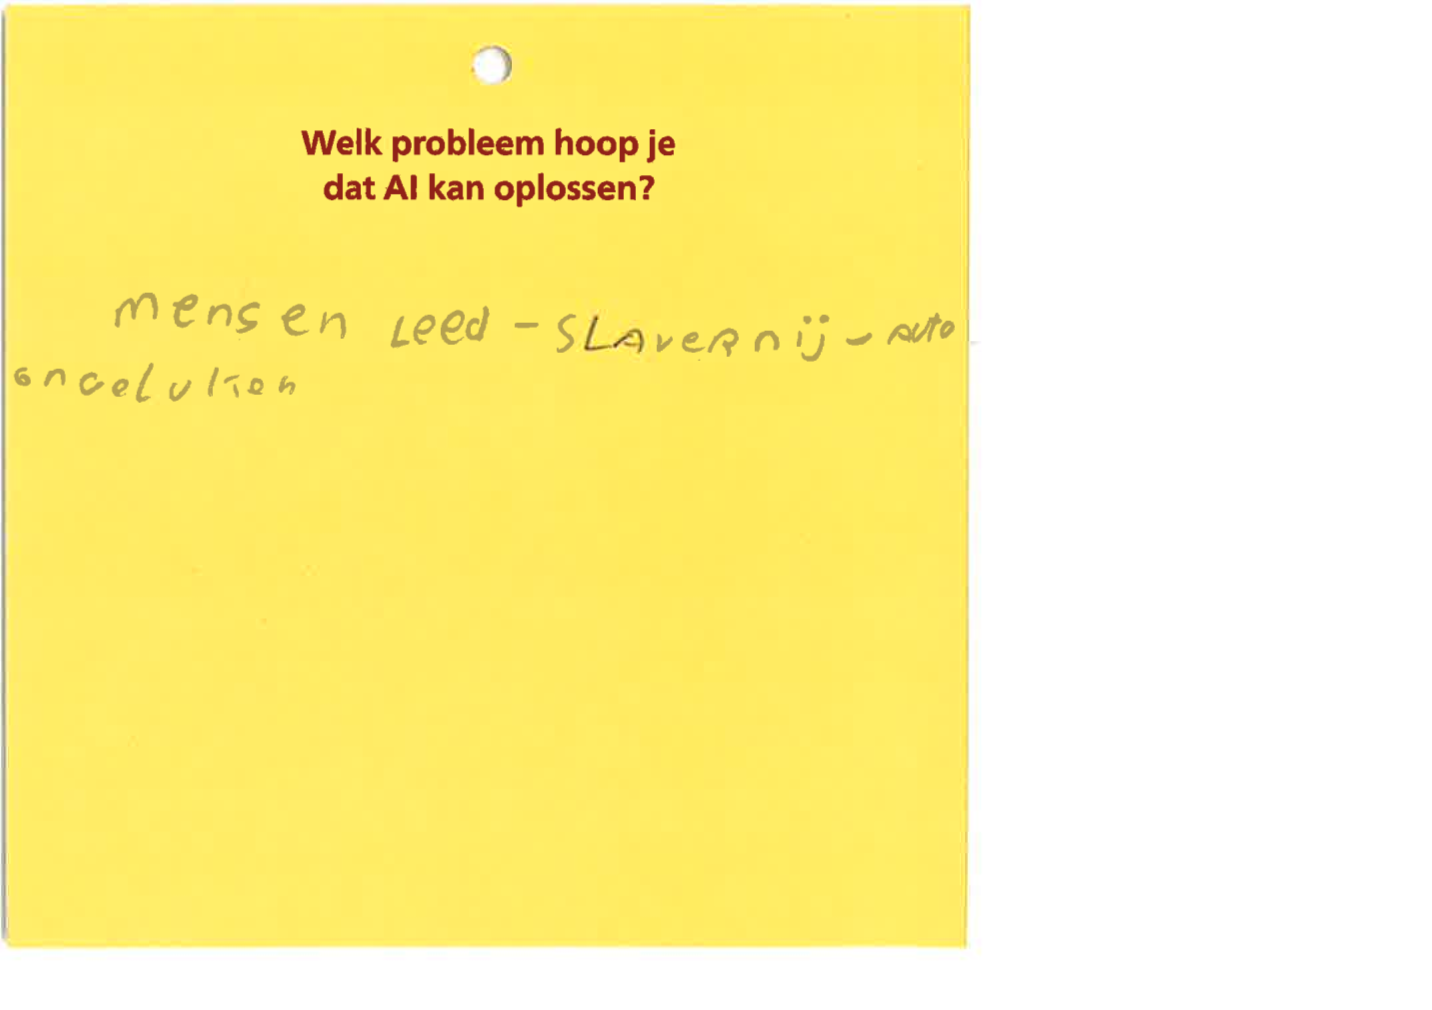 Welk probleem hoop je
dat AI kan oplossen?
mensen Leed - SLAverNij - Auto
ongelukken